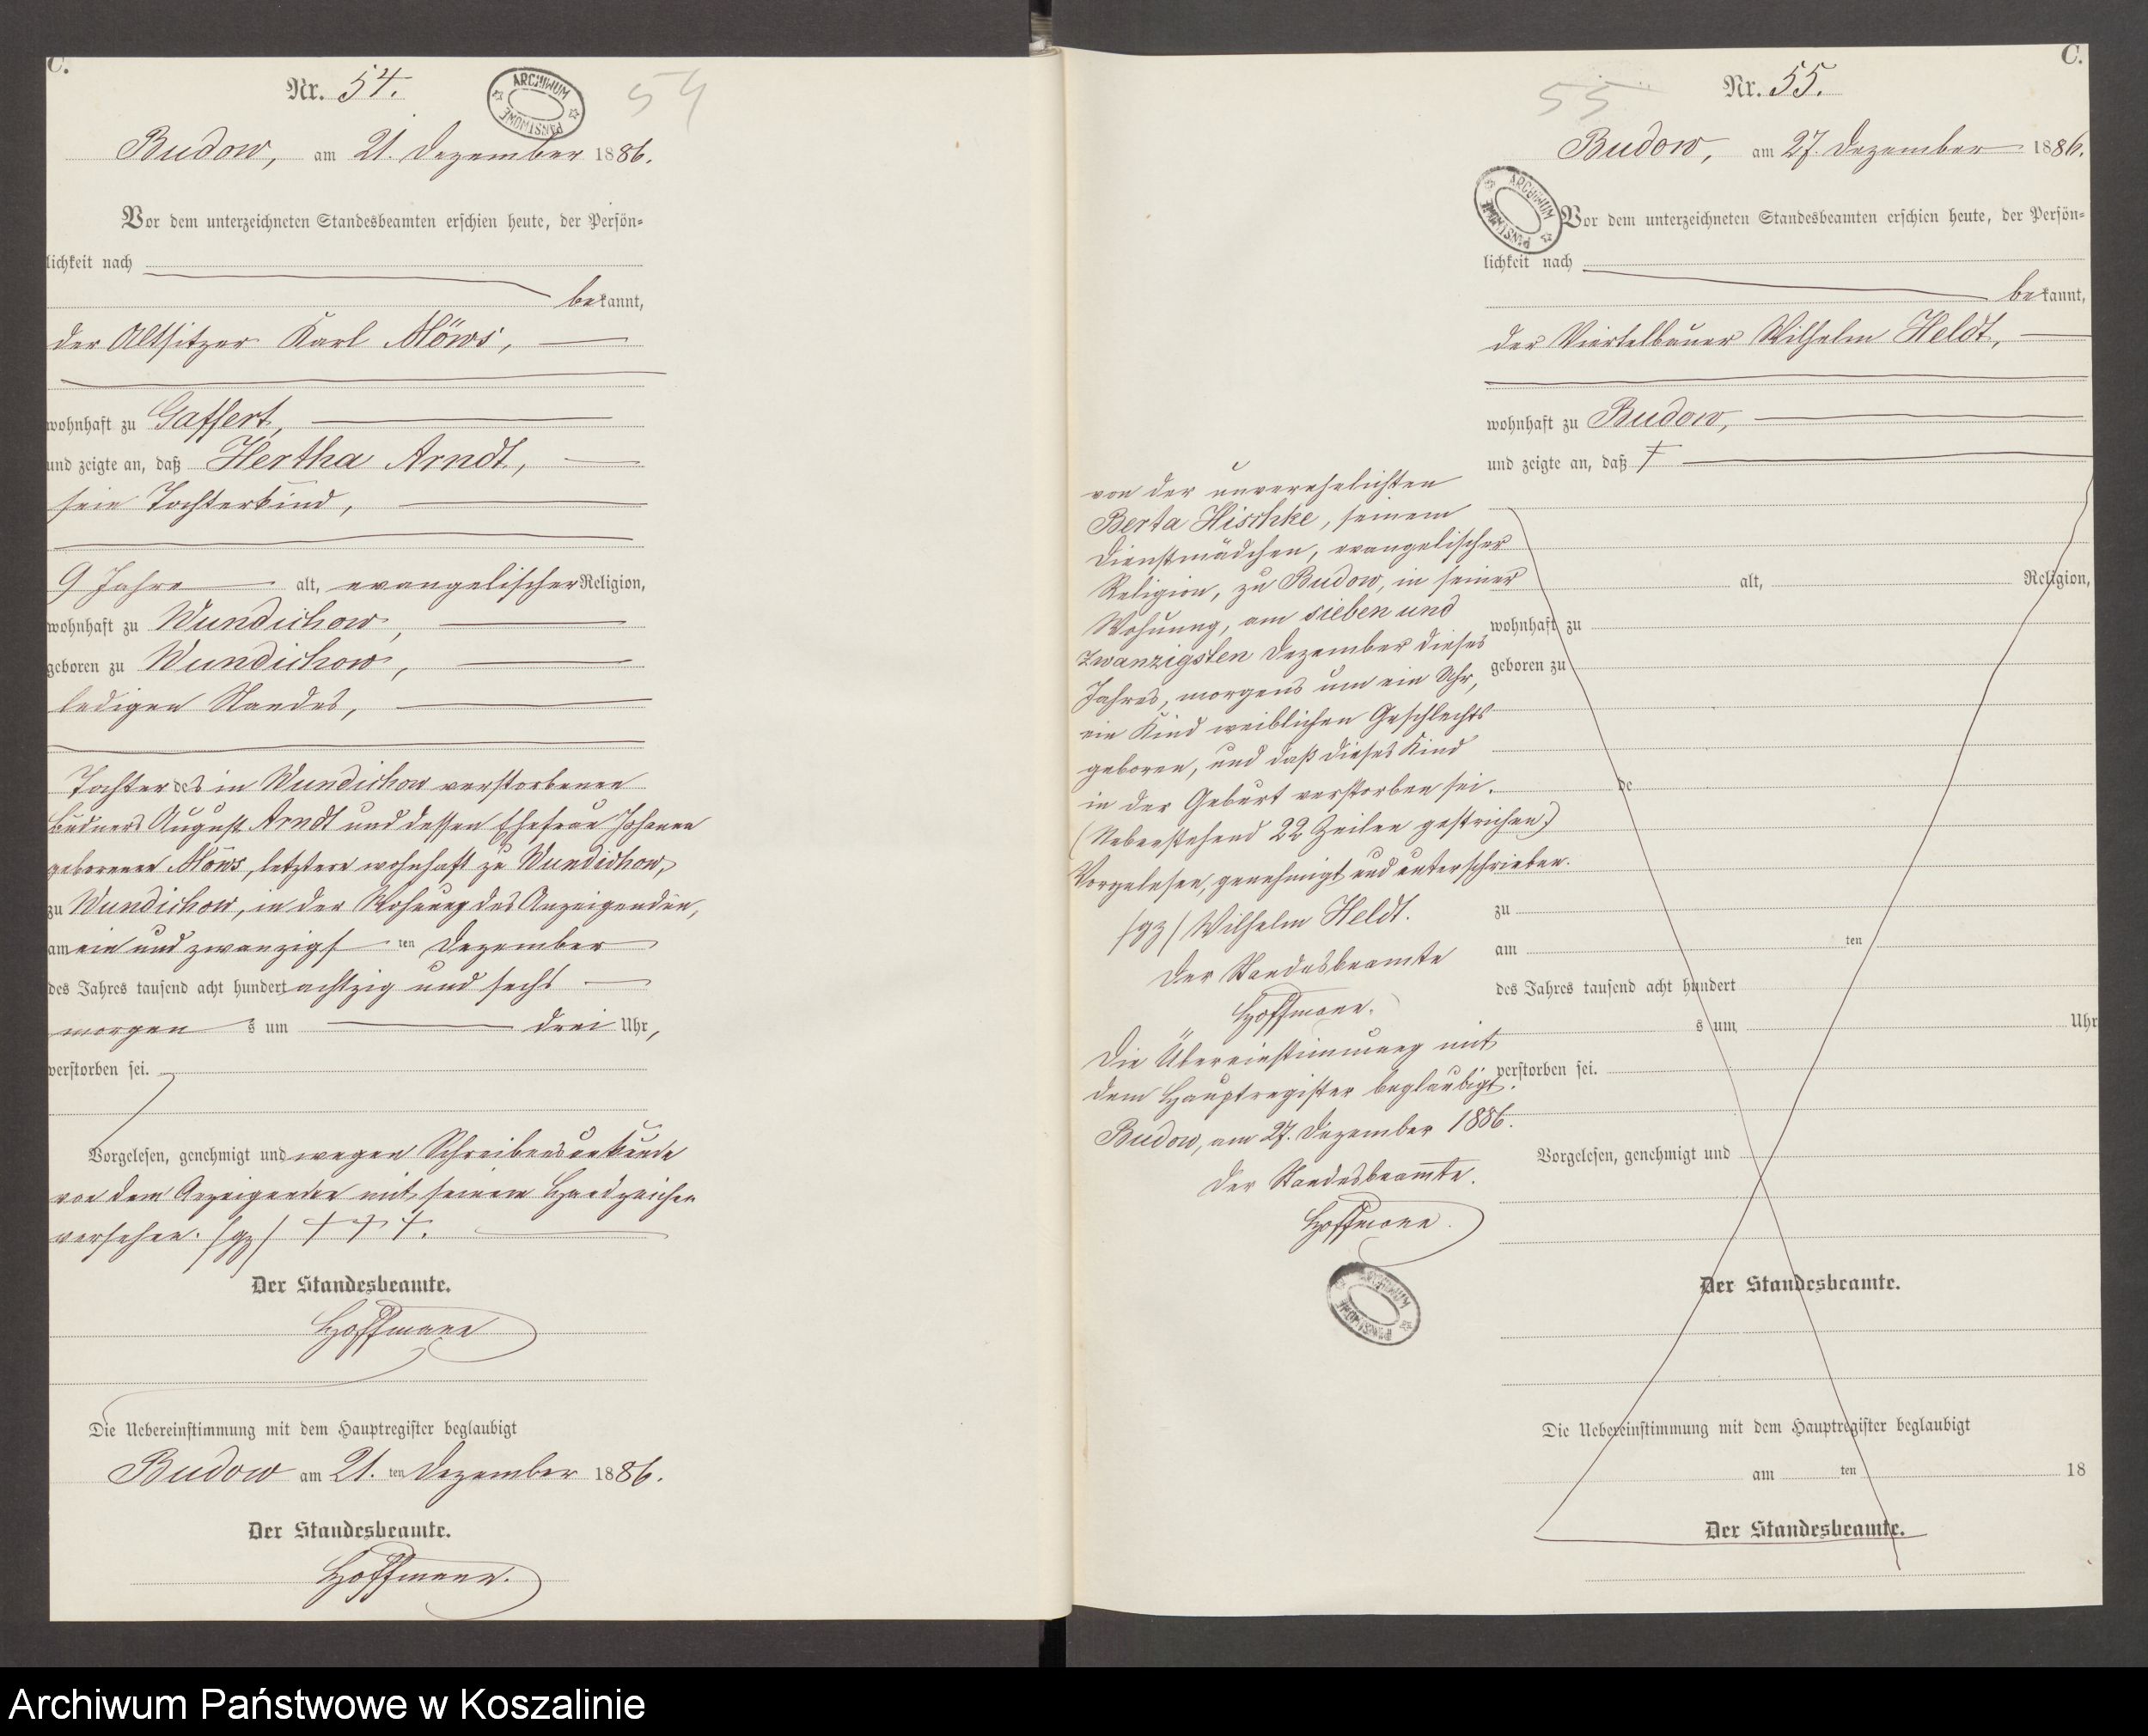 C.
Nr. 54.
ARCHIWUM PAŃSTWOWE
54
Budow, am 21. Dezember 1886.
Vor dem unterzeichneten Standesbeamten erschien heute, der Persön=
lichkeit nach
bekannt,
der Altsitzer Karl Möws,
wohnhaft zu Gaffert,
und zeigte an, daß Hertha Arndt,
sein Tochterkind,
9 Jahre alt, evangelischer Religion,
wohnhaft zu Wundichow,
geboren zu Wundichow,
ledigen Standes,
Tochter des in Wundichow verstorbenen
Büdners August Arndt und dessen Ehefrau Johanne
geborenen Möws, letztere wohnhaft zu Wundichow,
zu Wundichow, in der Wohnung des Anzeigenden,
am ein und zwanzigsten Dezember
des Jahres tausend acht hundert achtzig und sechs
morgens um drei Uhr,
verstorben sei.
Vorgelesen, genehmigt und wegen Schreibensunkunde
von dem Anzeigenden mit seinem Handzeichen
versehen. /gz/ † † †.
Der Standesbeamte.
Hoffmann
Die Uebereinstimmung mit dem Hauptregister beglaubigt
Budow am 21. ten Dezember 1886.
Der Standesbeamte.
Hoffmann.
C.
Nr. 55.
55
Budow, am 27. Dezember 1886.
ARCHIWUM PAŃSTWOWE
Vor dem unterzeichneten Standesbeamten erschien heute, der Persön=
lichkeit nach
bekannt,
der Viertelbauer Wilhelm Heldt,
wohnhaft zu Budow,
und zeigte an, daß †
von der unverehelichten
Berta Hischke, seinem
Dienstmädchen, evangelischer
Religion, zu Budow, in seiner
Wohnung, am sieben und
zwanzigsten Dezember dieses
Jahres, morgens um ein Uhr,
ein Kind weiblichen Geschlechts
geboren, und daß dieses Kind
in der Geburt verstorben sei.
(Nebenstehend 22 Zeilen gestrichen)
Vorgelesen, genehmigt und unterschrieben.
/gz/ Wilhelm Heldt.
Der Standesbeamte
Hoffmann.
Die Übereinstimmung mit
dem Hauptregister beglaubigt.
Budow, am 27. Dezember 1886.
Der Standesbeamte.
Hoffmann.
ARCHIWUM PAŃSTWOWE
alt, Religion,
wohnhaft zu
geboren zu
de
zu
am ten
des Jahres tausend acht hundert
s um Uhr
verstorben sei.
Vorgelesen, genehmigt und
Der Standesbeamte.
Die Uebereinstimmung mit dem Hauptregister beglaubigt
am ten 18
Der Standesbeamte.
Archiwum Państwowe w Koszalinie